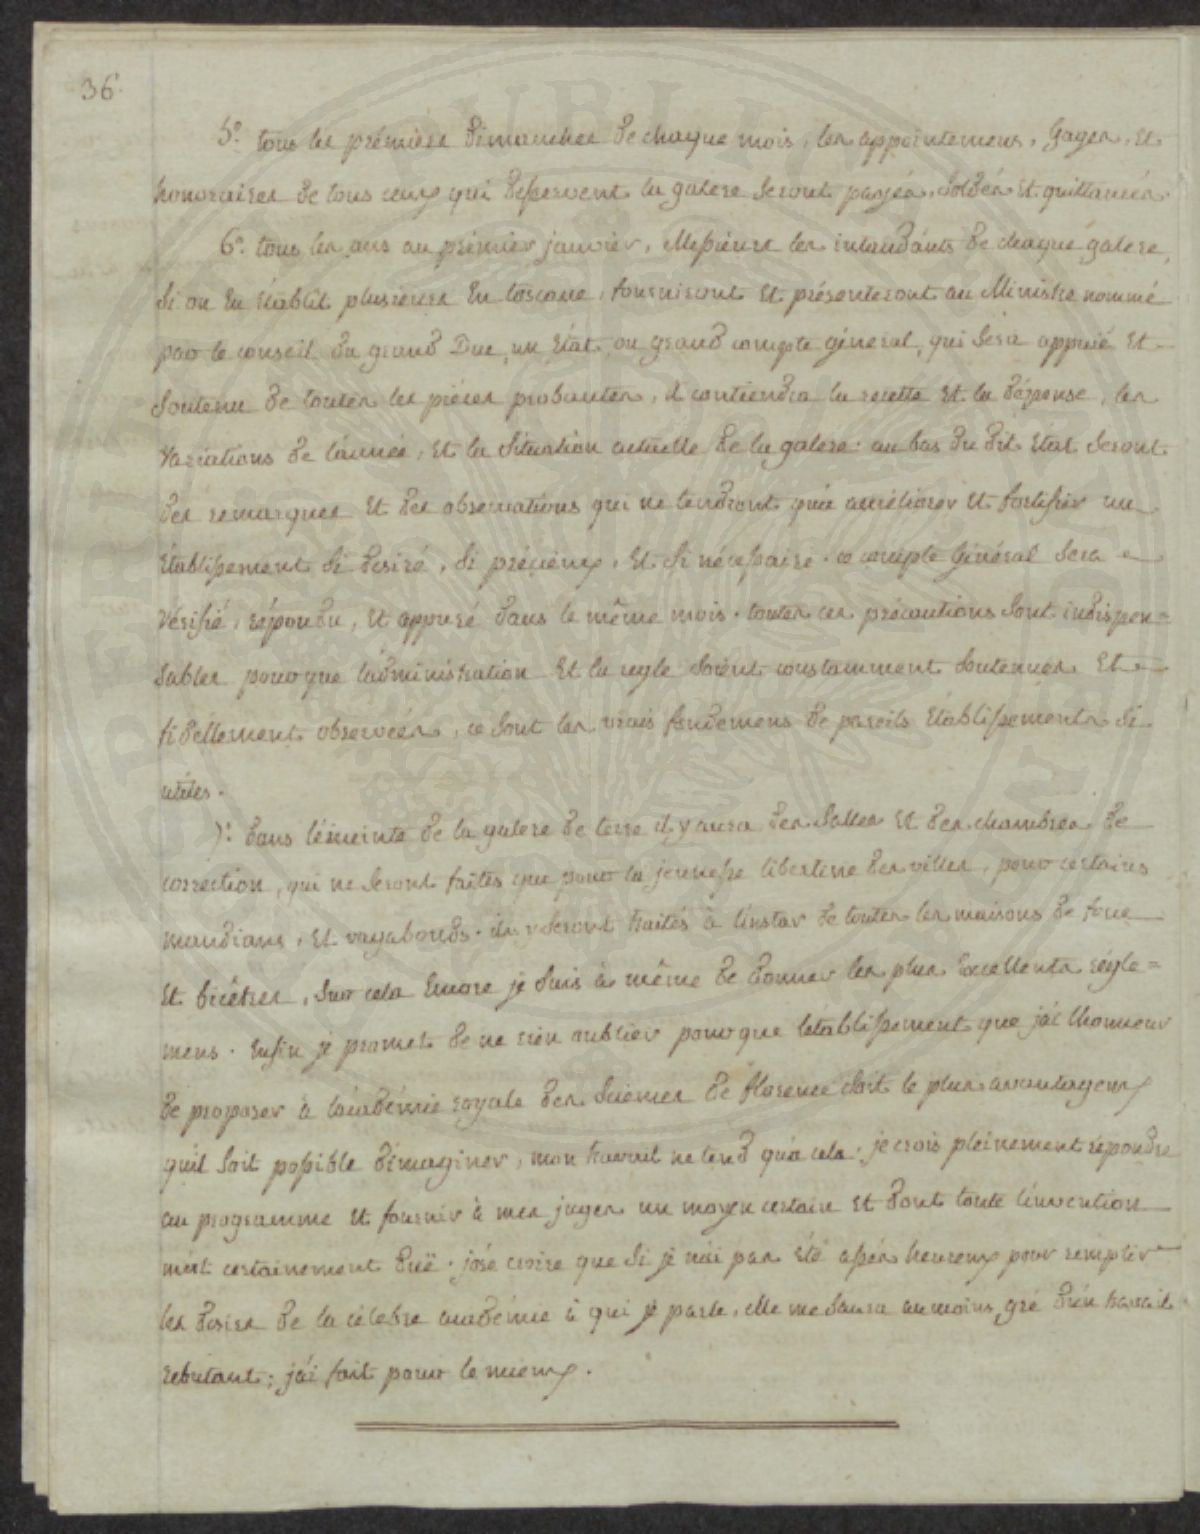 36.
5.° tous les prémiers dimanches de chaque mois, les appointemens, gages, et
honoraires de tous ceux qui desservent la galere seront payés, soldés et quittancés.
6.° tous les ans au prémier janvier, Messieurs les intendants de chaque galere,
si on en établit plusieurs en toscane, fourniront et présenteront au Ministre nommé
par le conseil du grand Duc, un état, ou grand compte géneral, qui sera appuié et
soutenu de toutes les piéces probantes, il contiendra la recette et la dépense, les
variations de l'année, et la situation actuelle de la galere. au bas du dit état seront
des remarques et des observations qui ne tendront qu'a améliorer et fortifier un
établissement si desiré, si précieux, et si nécessaire. ce compte général sera
vérifié, répondu, et appuré dans le même mois. toutes ces précautions sont indispen=
sables pour que l'administration et la regle soient constamment soutenues et
fidéllement observées, ce sont les vrais fondemens de pareils établissements si
utiles.
7.° dans l'enceinte de la galere de terre il y aura des salles et des chambres de
correction, qui ne seront faites que pour la jeunesse libertine des villes, pour certains
mandians, et vagabonds. ils y seront traités à l'instar de toutes les maisons de force
et bicêtres, sur cela encore je suis à même de donner les plus excellents régle=
mens. enfin je promet de ne rien oublier pour que l'établissement que j'ai l'honneur
de proposer à l'académie royale des sciences de florence soit le plus avantageux
qu'il soit possible d'imaginer, mon travail ne tend qu'a cela. je crois pleinement répondre
au programme et fournir à mes juges un moyen certain et dont toute l'invention
m'est certainement duë. j'ose croire que si je n'ai pas été assés heureux pour remplir
les desirs de la célebre académie à qui je parle, elle me saura au moins gré d'un travail
rebutant; j'ai fait pour le mieux.